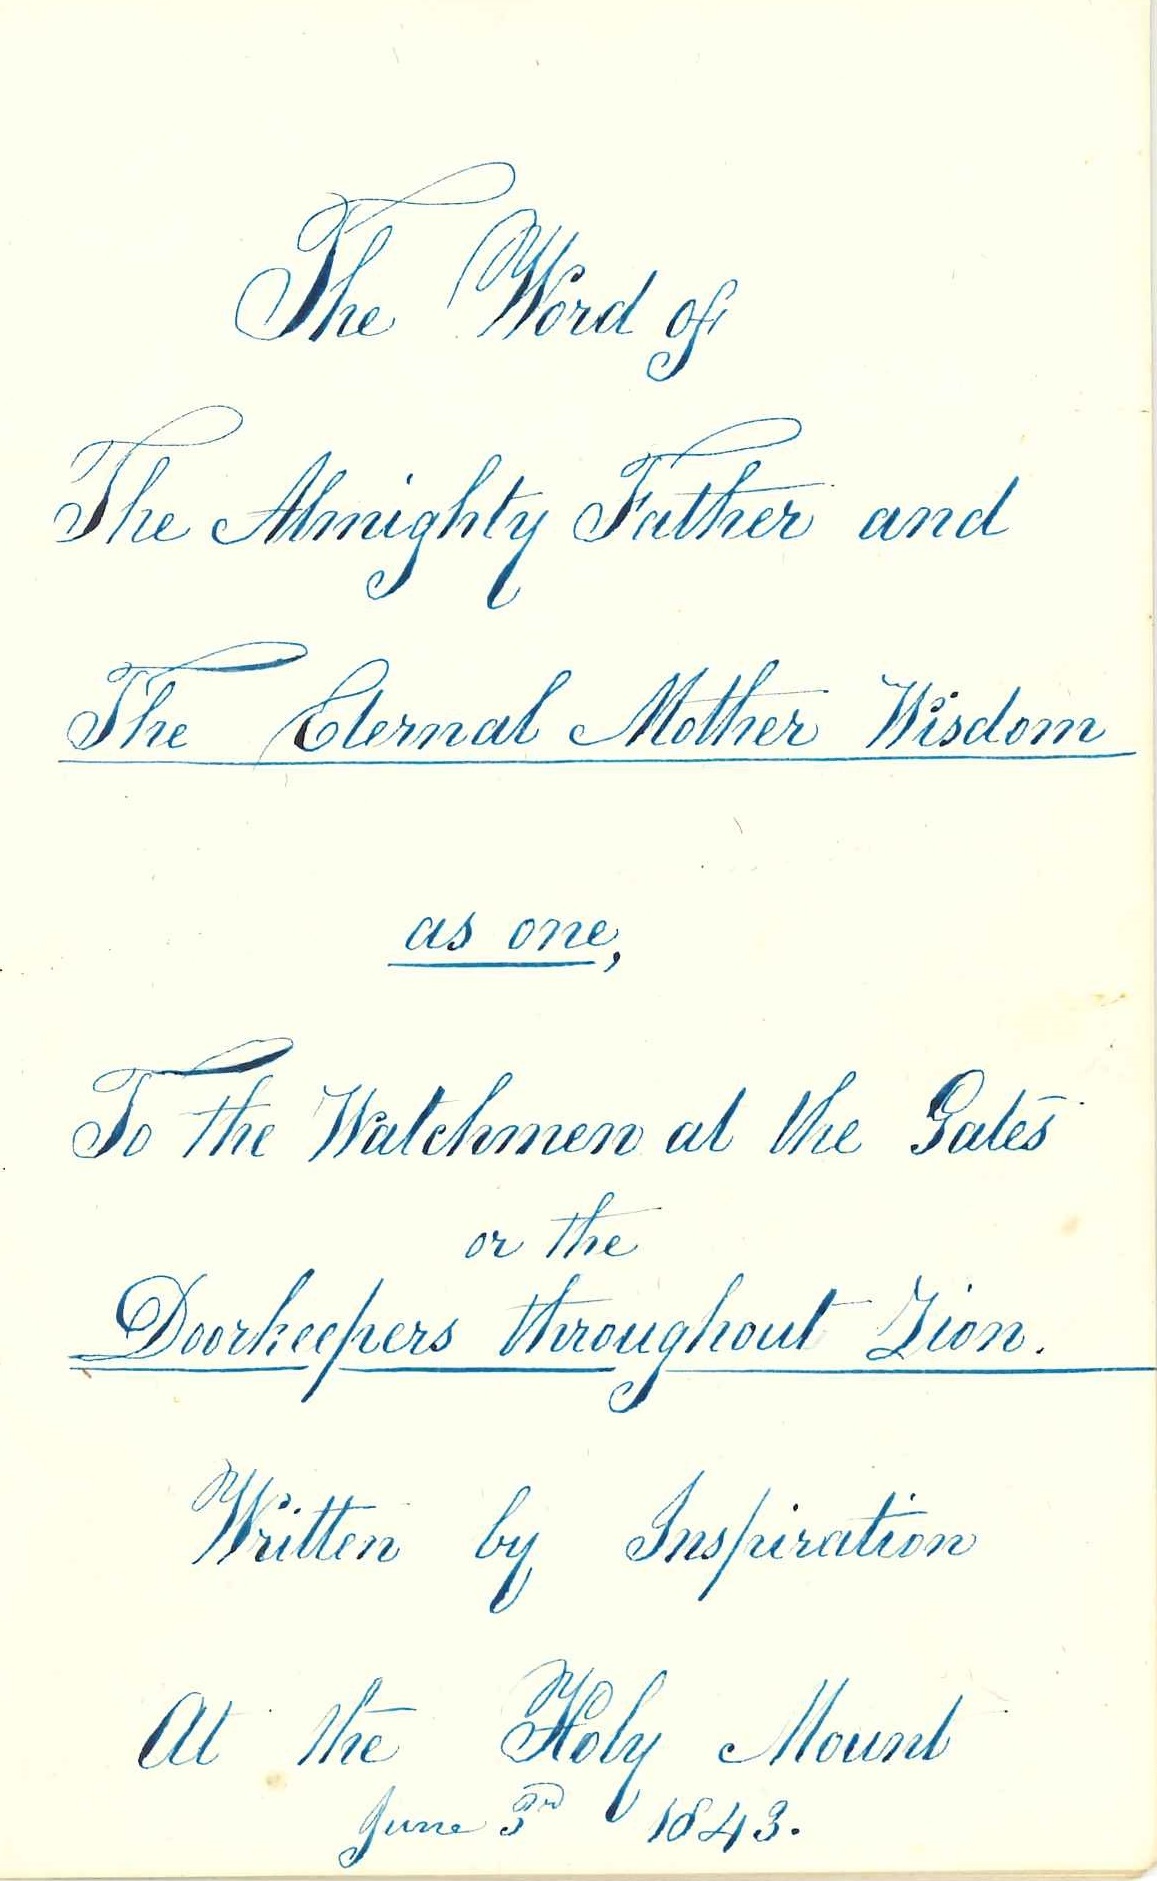 The Word of
The Almighty Father and
The Eternal Mother Wisdom
as one,
To the Watchmen at the Gates
or the
Doorkeepers throughout Zion.
Written by Inspiration
At the Holy Mount
June 3rd 1843.